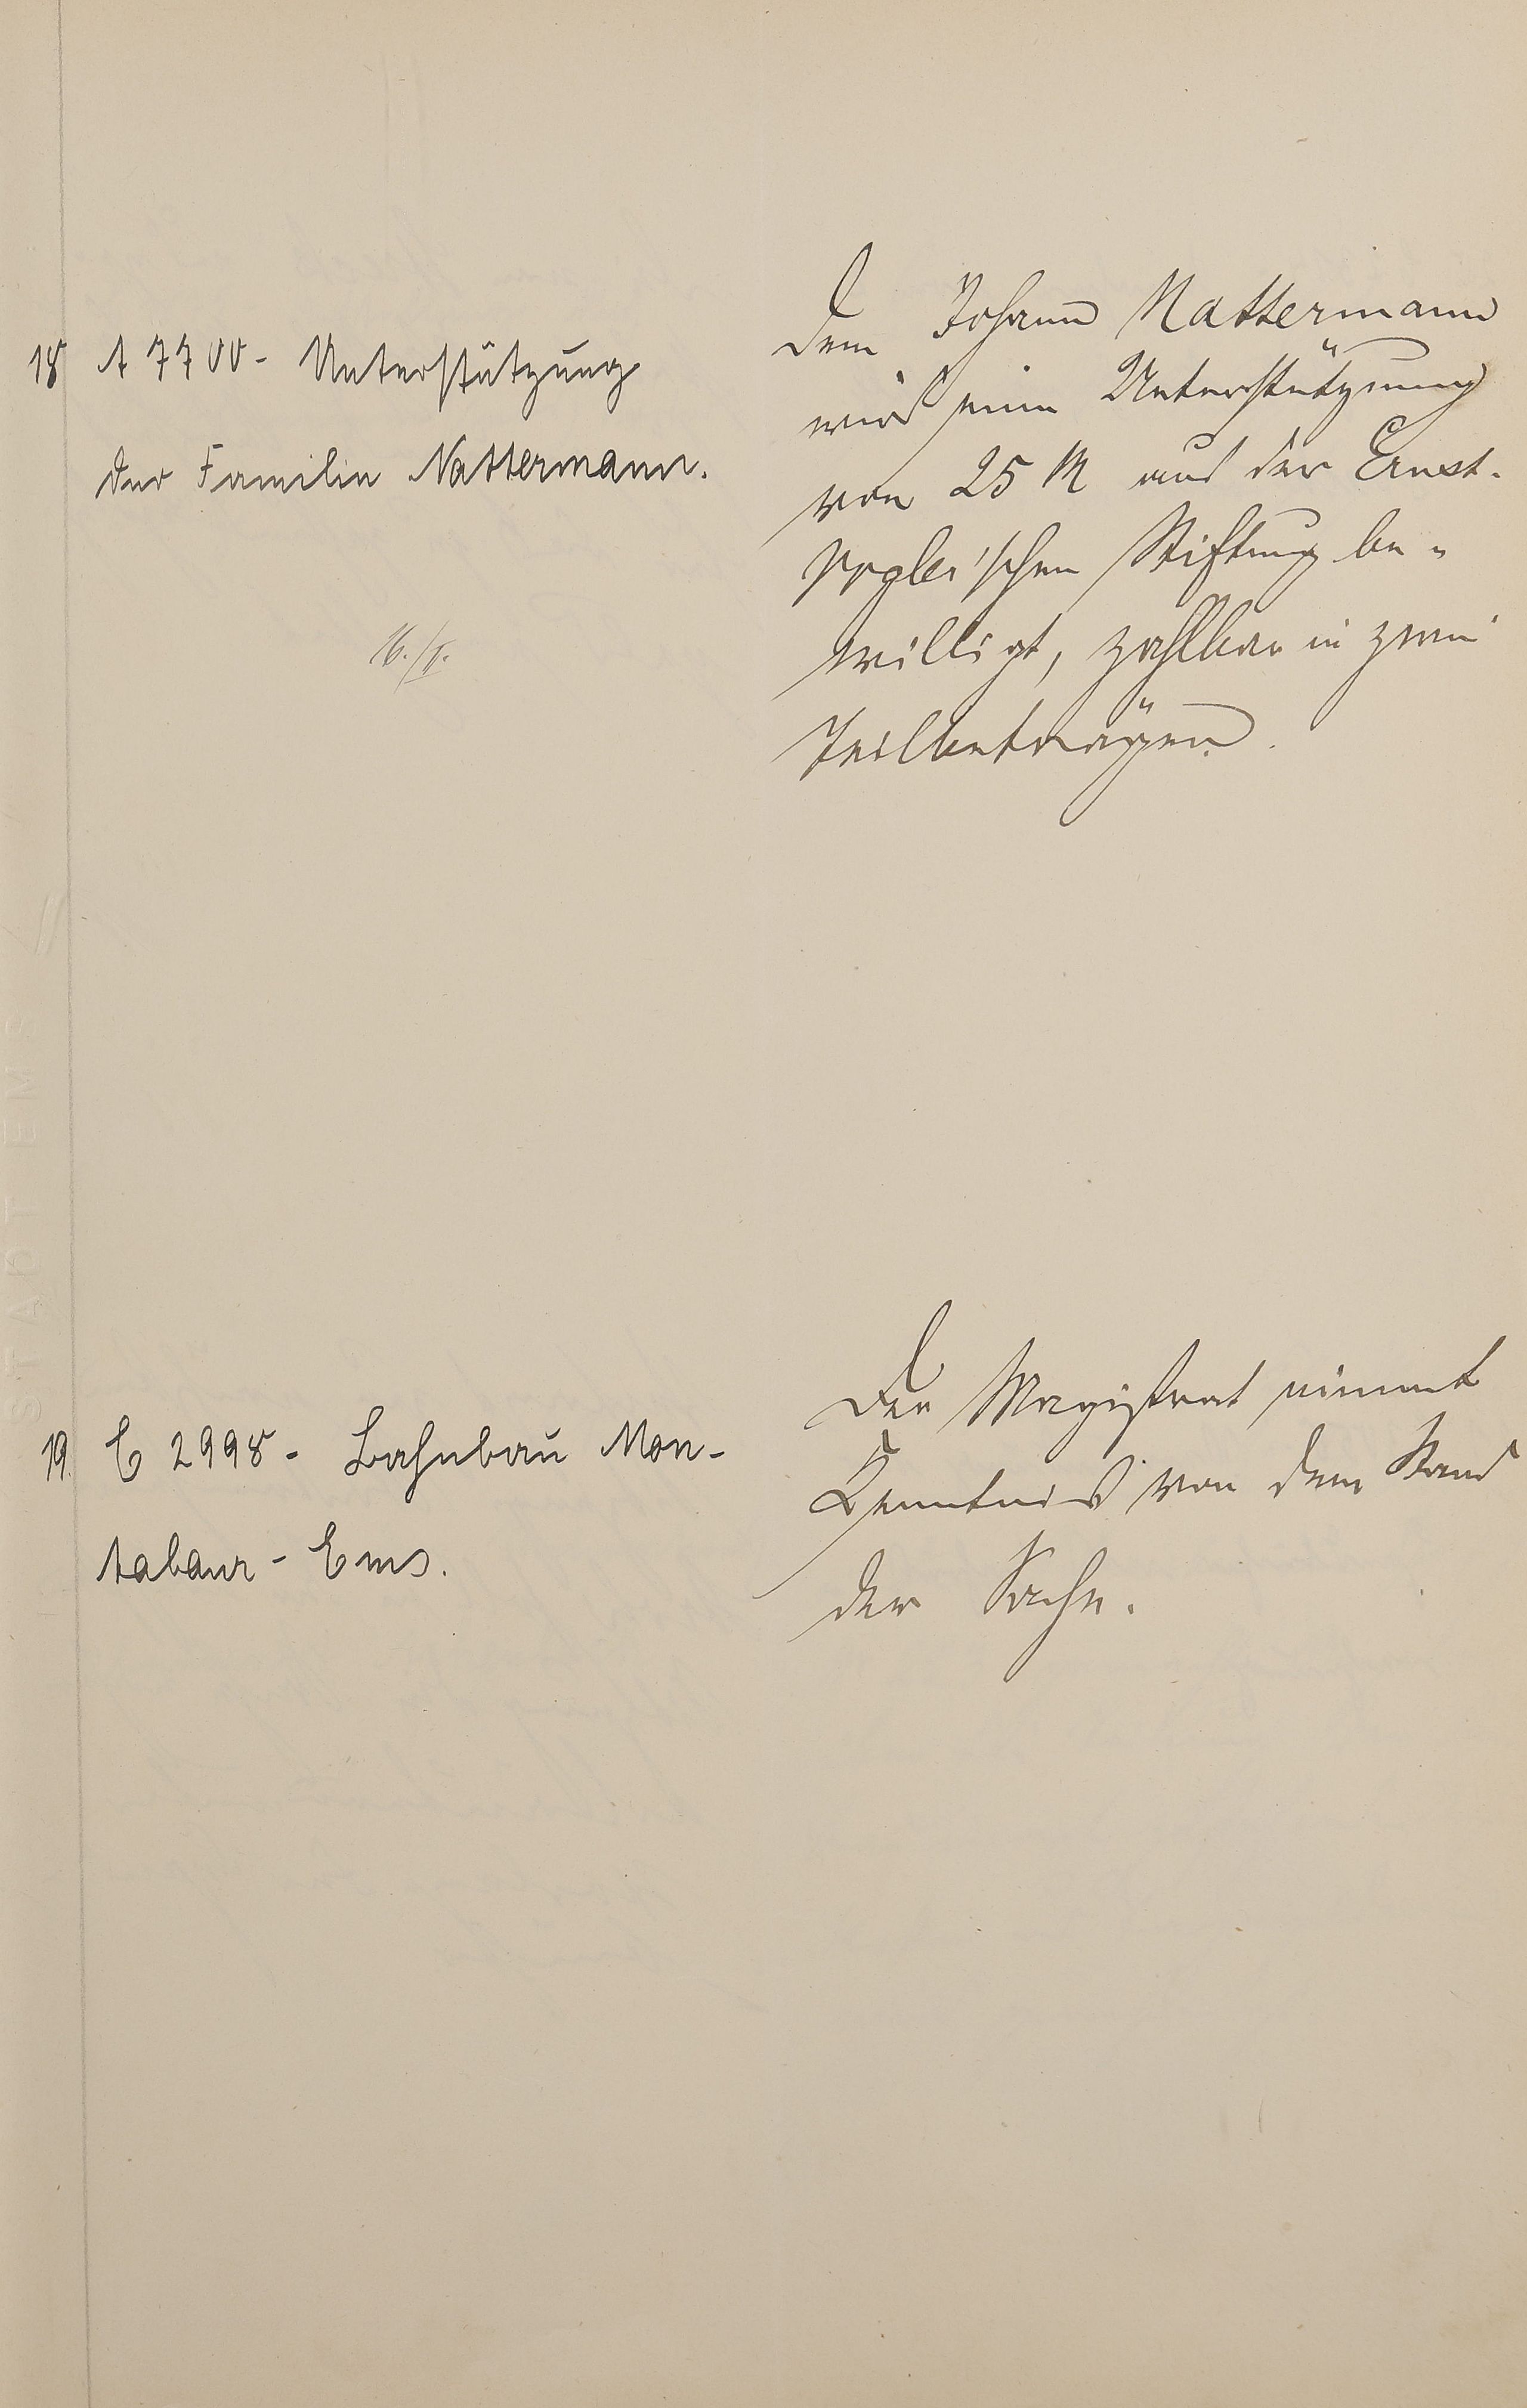 18 A 7700 - Unterstützung
der Familie Nattermann.
16./I.
Dem Johann Nattermann
wird eine Unterstützung
von 25 M aus der Ernst-
Vogler'schen Stiftung be-
willigt, zahlbar in zwei
Teilbeträgen.
19. C 2998 - Bahnbau Mon-
tabaur - Ems.
Der Magistrat nimmt
Kenntnis von dem Stand
der Sache.
STADT EMS